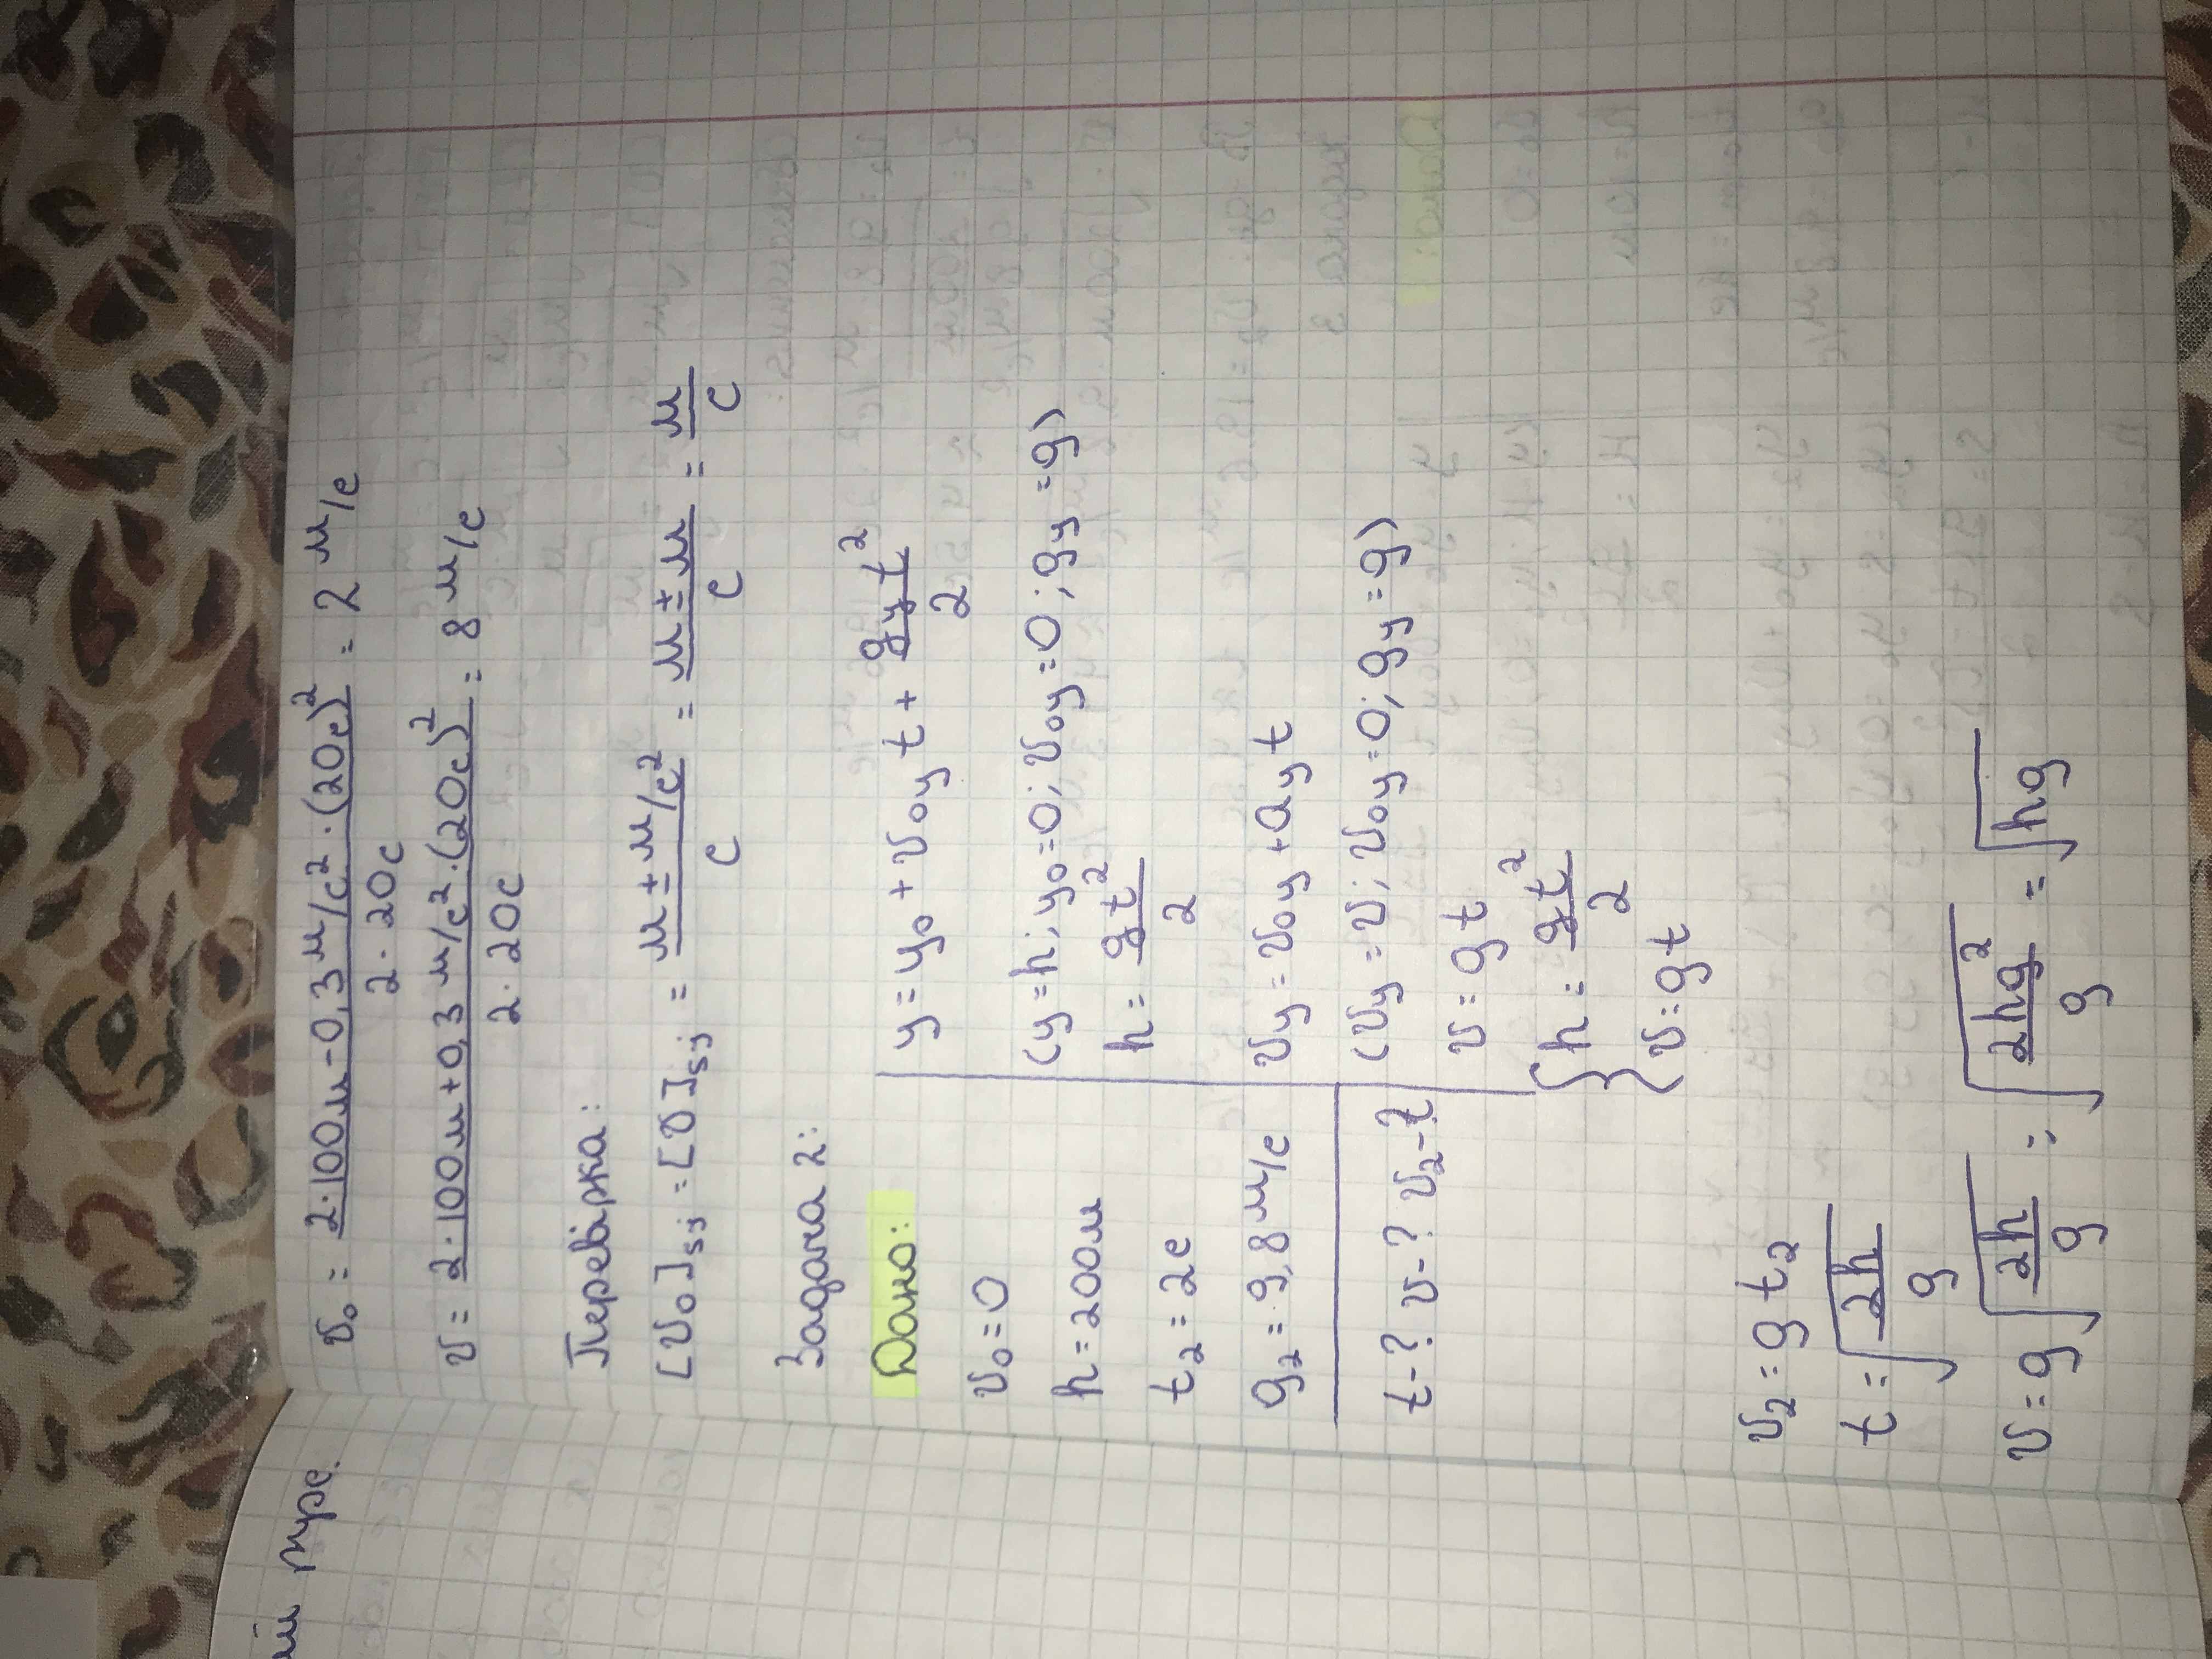 ій туре.
v₀ = (2·100м-0,3 м/с²·(20с)²)/(2·20с) = 2 м/с
v = (2·100м+0,3 м/с²·(20с)²)/(2·20с) = 8 м/с
Перевірка:
[v₀]sj = [v]sj = (м±м/с²)/с = (м±м)/с = м/с
Задача 2:
Дано:
v₀=0
h=200м
t₂=2с
g₂=9,8м/с
t-? v-? v₂-?
y=y₀+v₀yt+(gyt²)/2
(y=h; y₀=0; v₀y=0; gy=g)
h=(gt²)/2
vy=v₀y+ayt
(vy=v; v₀y=0; gy=g)
v=gt
{h=(gt²)/2
{v=gt
v₂=gt₂
t=√(2h/g)
v=g√(2h/g) = √(2hg²/g) = √hg